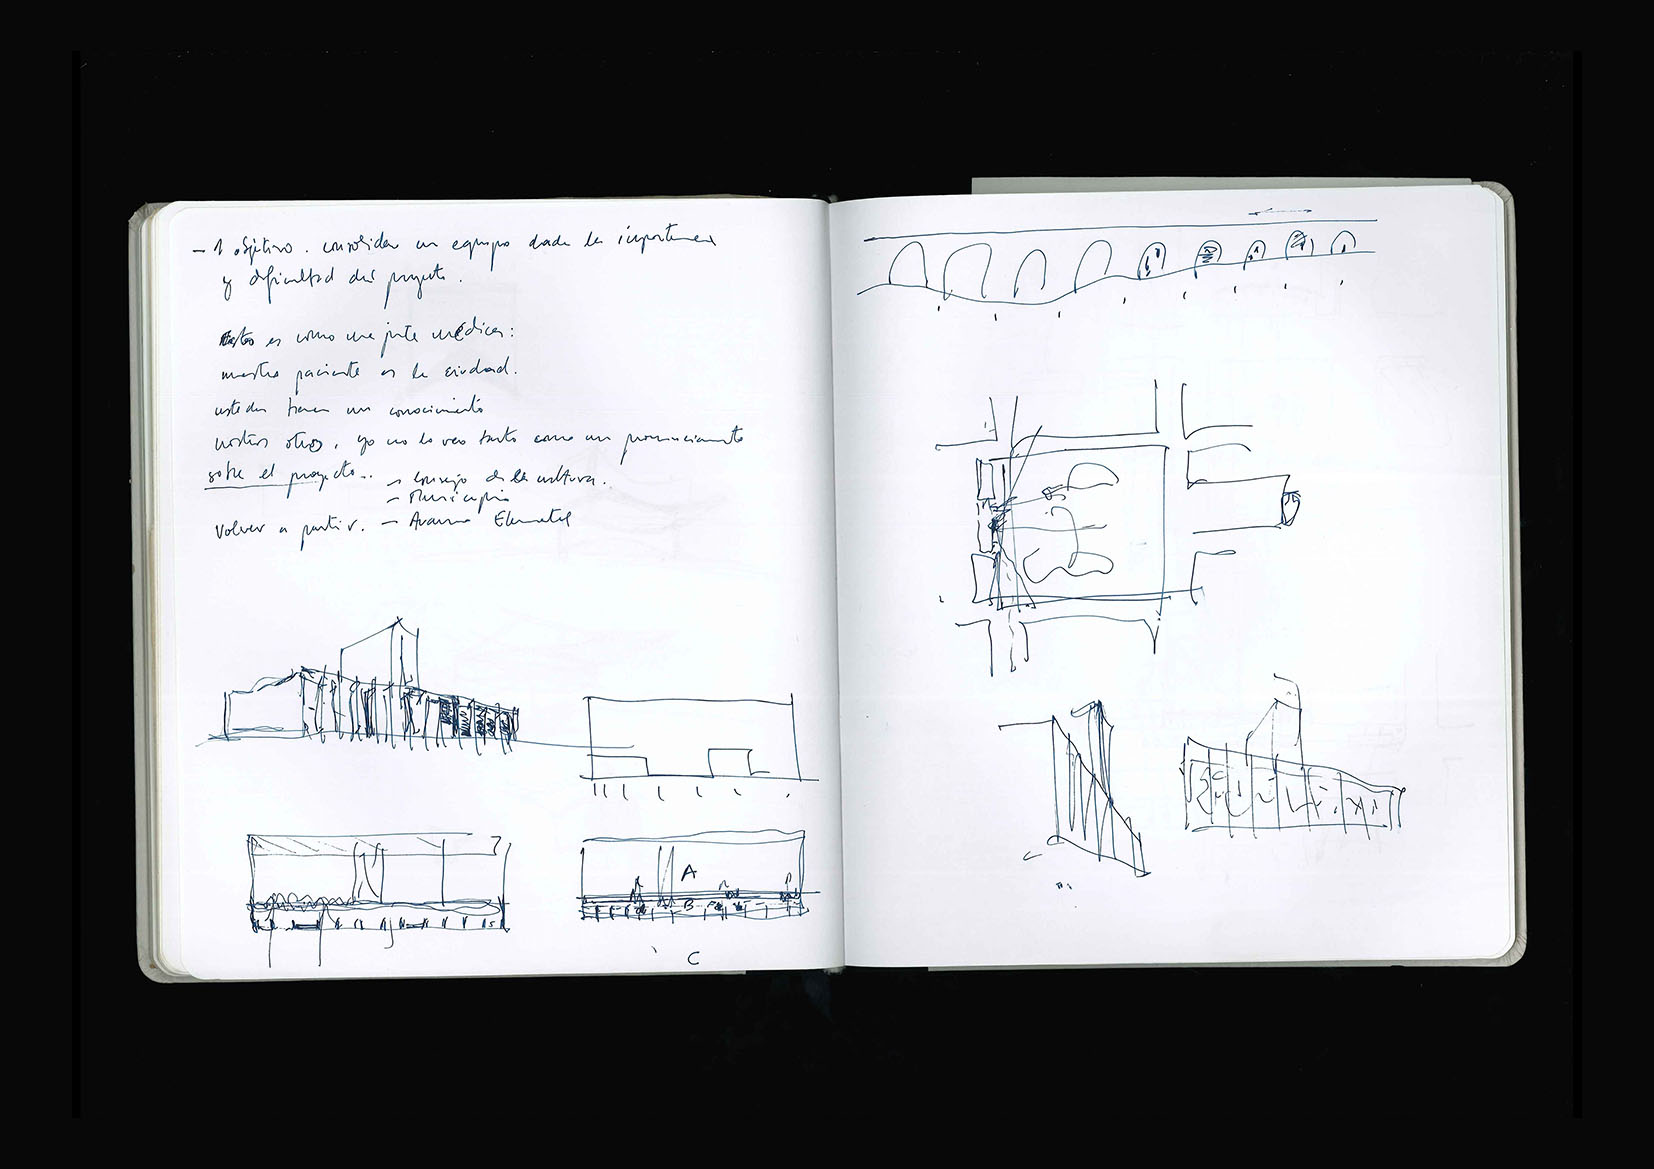 – 1 objetivo. consolidar un equipo dada la importancia
y dificultad del proyecto.
Esto es como una junta médica:
nuestro paciente es la ciudad.
ustedes tienen un conocimiento
nosotros otros, yo no lo veo tanto como un pronunciamiento
sobre el proyecto..
– consejo de la cultura.
– Municipio
volver a partir. – Avance Elemental
A
B
C